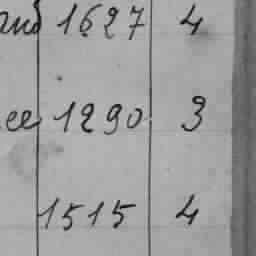 and 1627 4
ce 1290 3
1515 4